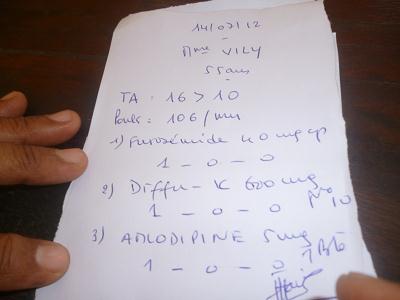 14/07/12
Mme VILY
55 ans
TA : 16 > 10
Pouls : 106/mn
1) Furosémide 40 mg cp
1 - 0 - 0
2) Diffu-K 600 mg
1 - 0 - 0 N°10
3) AMLODIPINE 5mg
1 - 0 - 0 1Bte